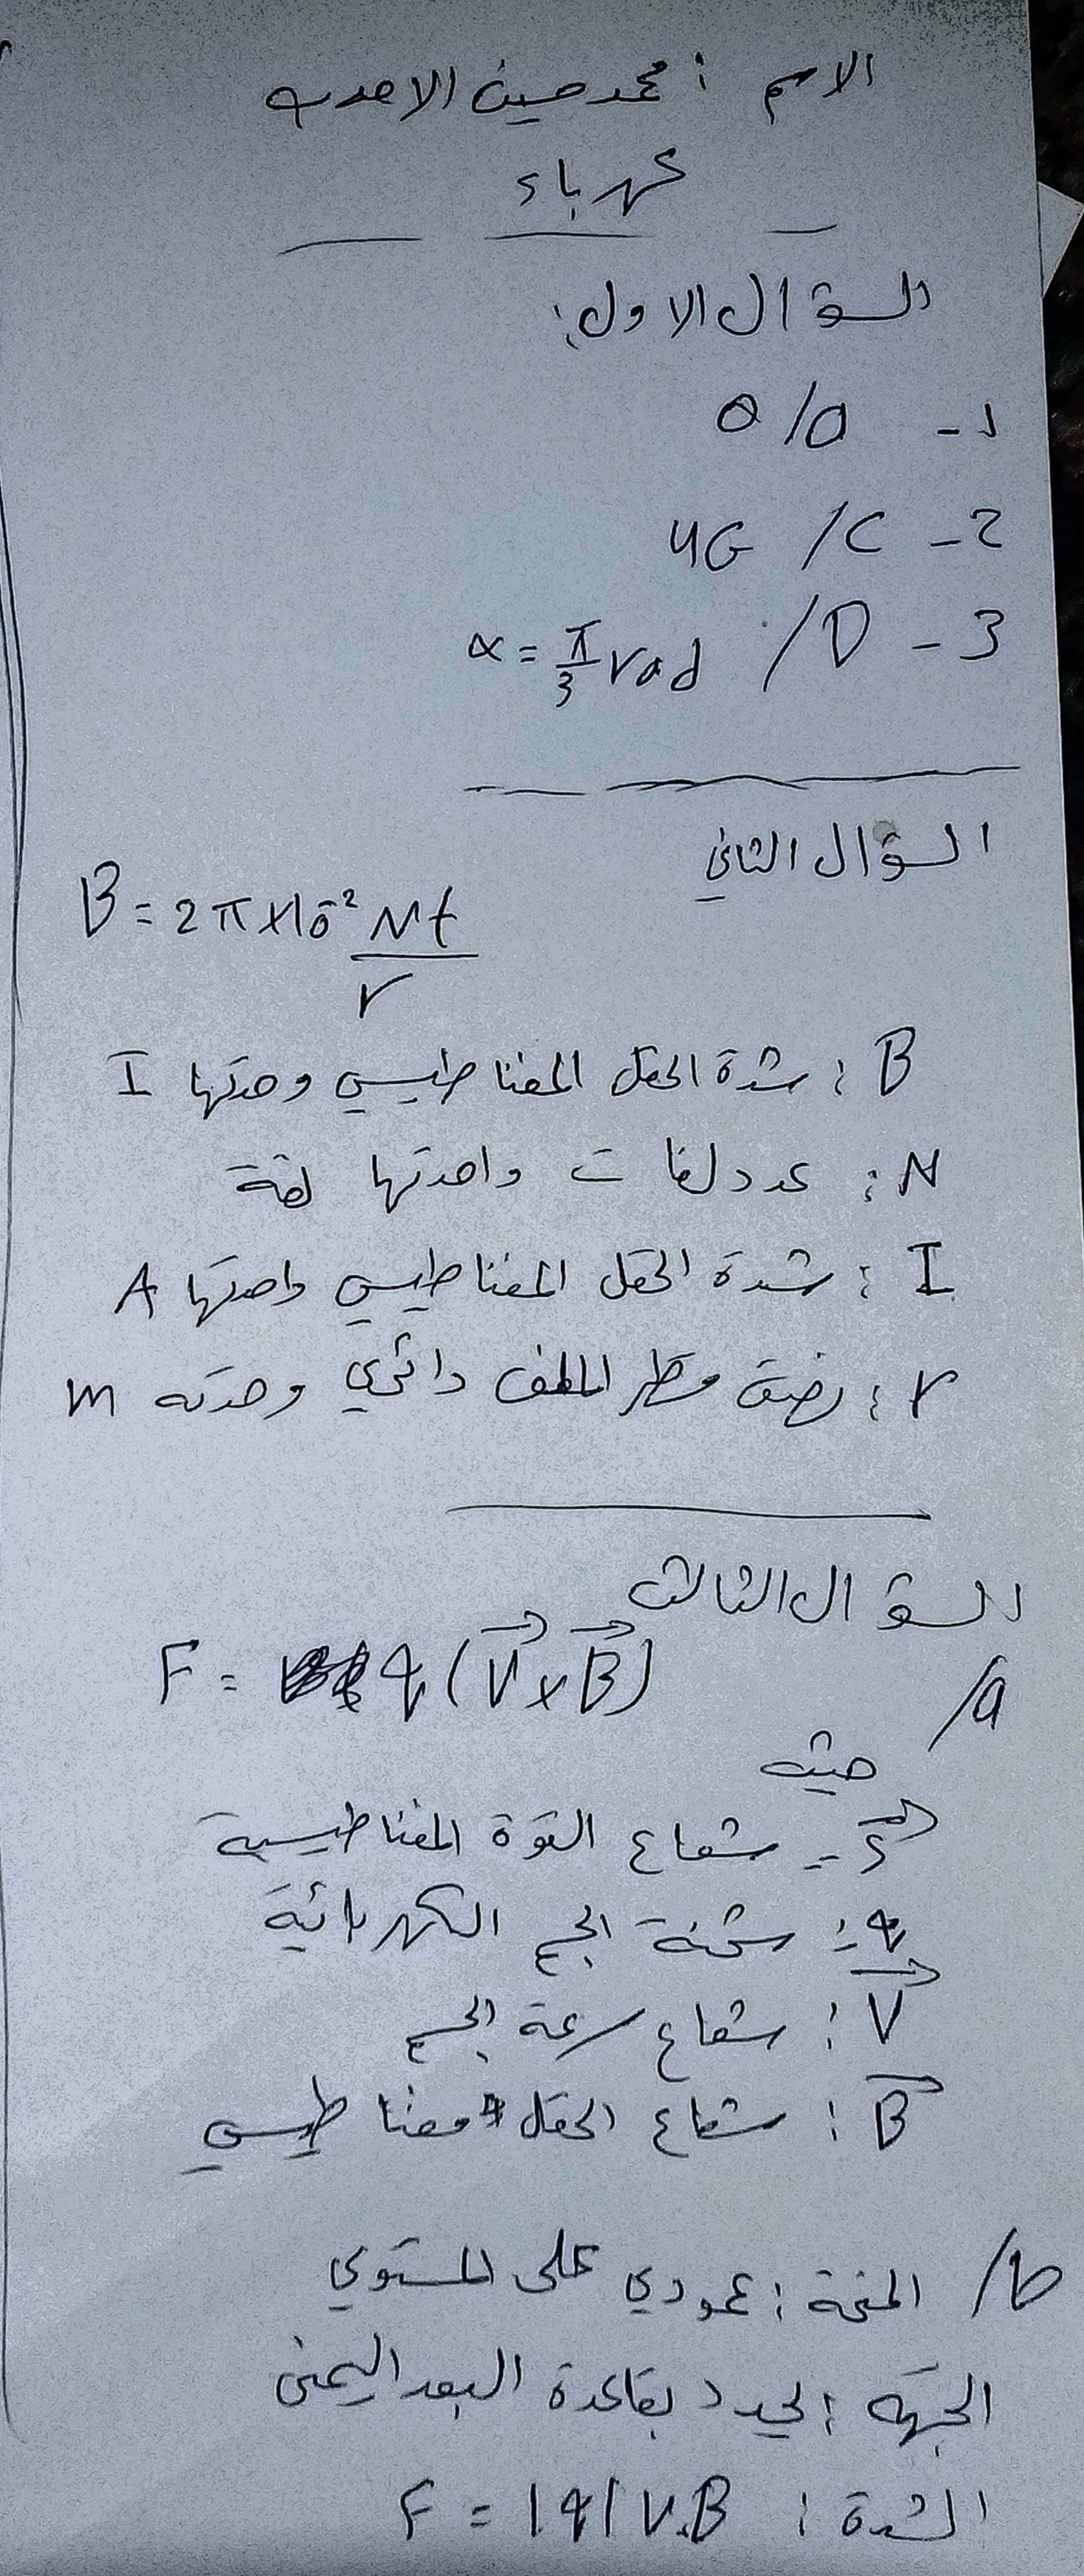 الاسم : محمد حسين الاحدب
كهرباء
السؤال الاول:
1- a/ 0
2- C/ 4G
3- D/ α = π/3 rad
السؤال الثاني
B = 2π×10⁻² Nt/r
B : شدة الحقل المغناطيسي وحدتها I
N : عدد لفات واحدتها لفة
I : شدة الحقل المغناطيسي واحدتها A
r : نصف قطر الملف دائري وحدته m
السؤال الثالث
a/ F = q(V⃗×B⃗)
حيث
شعاع القوة المغناطيسية
q : شحنة الجسم الكهربائية
V⃗ : شعاع سرعة الجسم
B⃗ : شعاع الحقل مغناطيسي
b/ المنحة : عمودي على المستوي
الجهة : تحدد بقاعدة اليد اليمنى
الشدة : F = |q|V.B